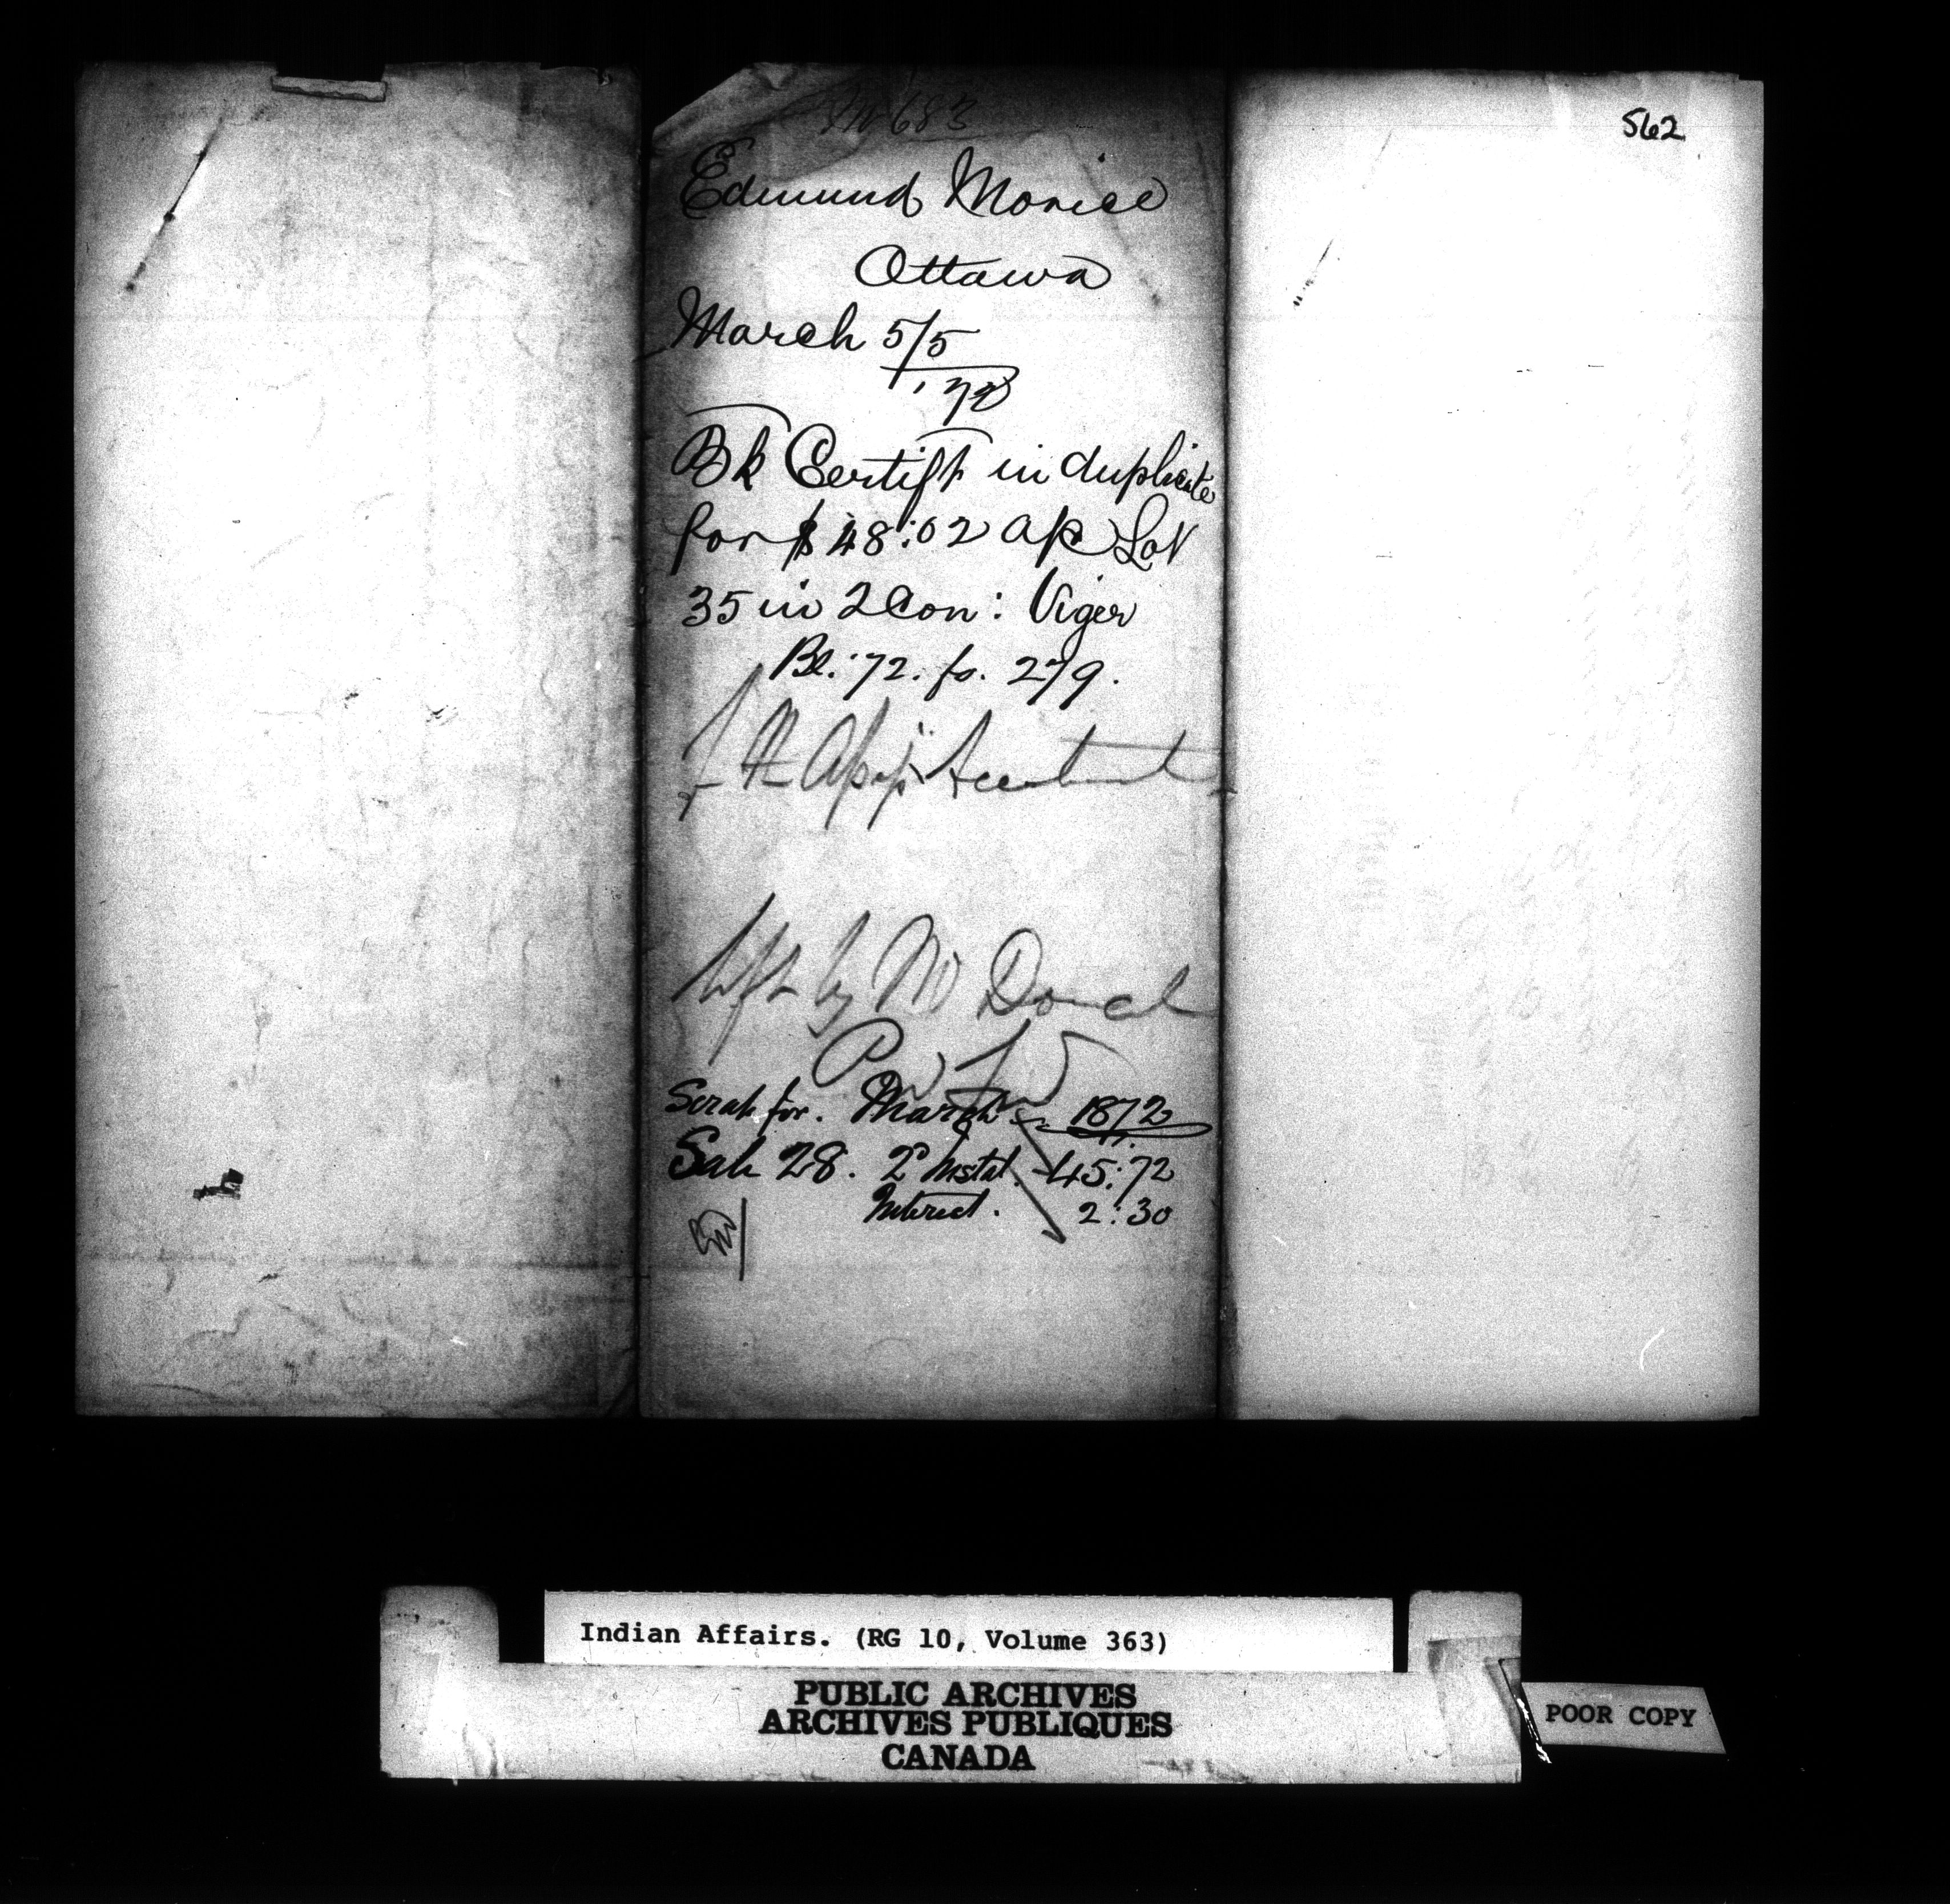 562
No 683
Edmund Morice
Ottawa
March 5/5
'72
Bk Certift in duplicate
for $48:02 a/c Lot
35 in 2 Con: Viger
Bk: 72. fo. 279.
left by Mr
March 1872
Sale 28. 2d Instal. 45:72
Interest. 2:30
Indian Affairs. (RG 10, Volume 363)
PUBLIC ARCHIVES
ARCHIVES PUBLIQUES
CANADA
POOR COPY